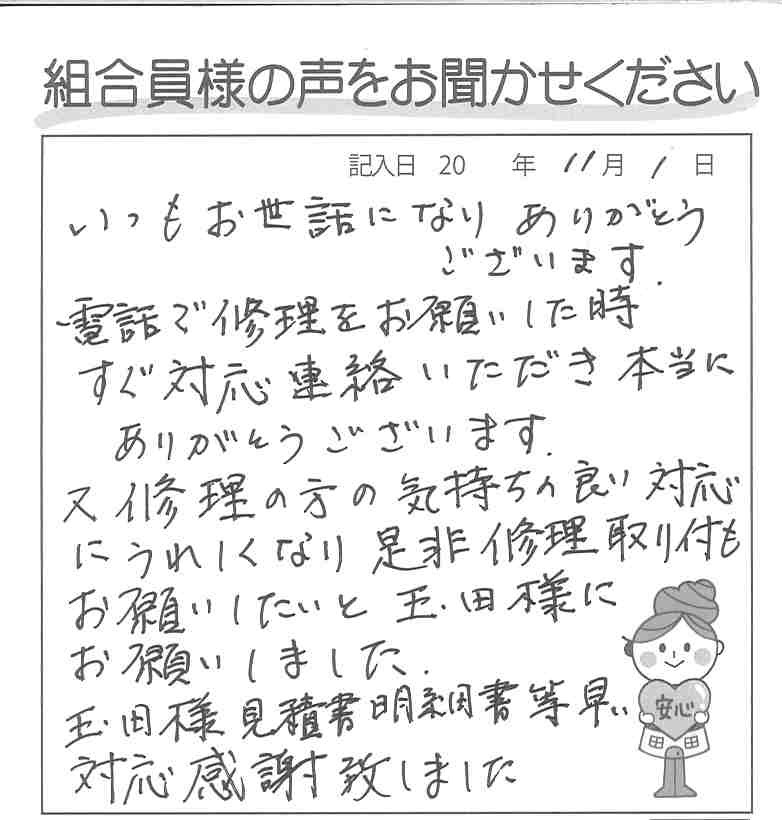 組合員様の声をお聞かせください
記入日 20 年 11月 1日
いつもお世話になり ありがとう
ございます.
電話で修理をお願いした時
すぐ対応連絡いただき本当に
ありがとうございます.
又修理の方の気持ちの良い対応
にうれしくなり是非修理取り付も
お願いしたいと玉田様に
お願いしました.
玉田様見積書明細書等早い
対応感謝致しました
安心